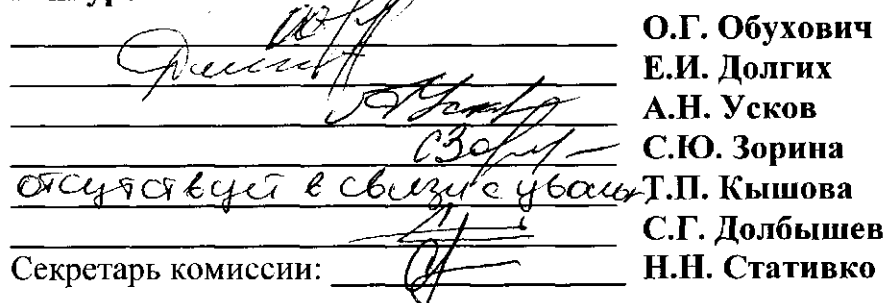 О.Г. Обухович
Е.И. Долгих
А.Н. Усков
С.Ю. Зорина
отсутствует в связи с Т.П. Кышова
С.Г. Долбышев
Секретарь комиссии: Н.Н. Стативко